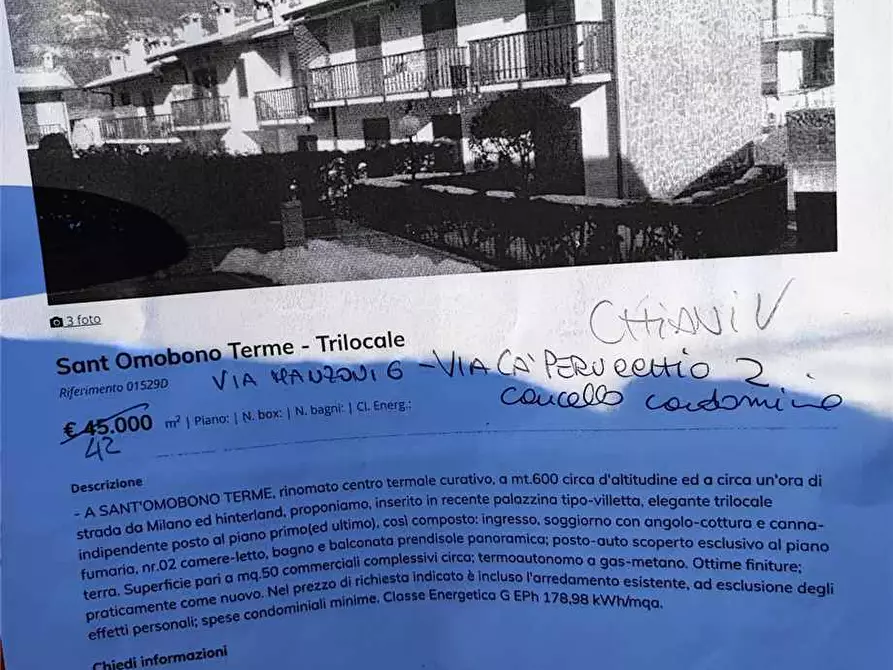 3 foto
CHIAVI V
Sant Omobono Terme - Trilocale
Riferimento 01529D
VIA MANZONI 6 - VIA CA' PERUCCHIO 2
cancello condominio
€ 45.000 m² | Piano: | N. box: | N. bagni: | Cl. Energ.:
42
Descrizione
- A SANT'OMOBONO TERME, rinomato centro termale curativo, a mt.600 circa d'altitudine ed a circa un'ora di
strada da Milano ed hinterland, proponiamo, inserito in recente palazzina tipo-villetta, elegante trilocale
indipendente posto al piano primo(ed ultimo), così composto: ingresso, soggiorno con angolo-cottura e canna-
fumaria, nr.02 camere-letto, bagno e balconata prendisole panoramica; posto-auto scoperto esclusivo al piano
terra. Superficie pari a mq.50 commerciali complessivi circa; termoautonomo a gas-metano. Ottime finiture;
praticamente come nuovo. Nel prezzo di richiesta indicato è incluso l'arredamento esistente, ad esclusione degli
effetti personali; spese condominiali minime. Classe Energetica G EPh 178,98 kWh/mqa.
Chiedi informazioni